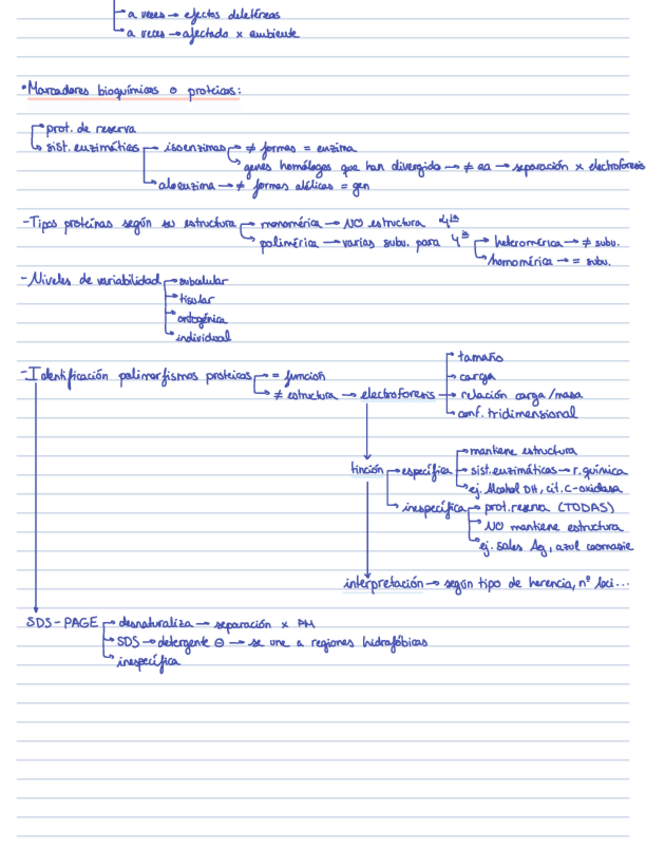 a veces → efectos deletéreos
a veces → afectado x ambiente
• Marcadores bioquímicos o proteicos:
prot. de reserva
sist. enzimáticos → isoenzimas → ≠ formas = enzima
genes homólogos que han divergido → ≠ aa → separación x electroforesis
aloenzima → ≠ formas alélicas = gen
- Tipos proteínas según su estructura → monomérica → NO estructura 4ia
polimérica → varias subu. para 4ia → heteromérica → ≠ subu.
homomérica → = subu.
- Niveles de variabilidad → subcelular
tisular
ontogénica
individual
tamaño
- Identificación polimorfismos proteicos → = función → carga
≠ estructura → electroforesis → relación carga/masa
conf. tridimensional
mantiene estructura
tinción → específica → sist. enzimáticos → r. química
ej. Alcohol DH, cit. C-oxidasa
inespecífica → prot. reserva (TODAS)
NO mantiene estructura
ej. sales Ag, azul coomasie
interpretación → según tipo de herencia, nº loci...
SDS-PAGE → desnaturaliza → separación x PM
SDS → detergente ⊖ → se une a regiones hidrofóbicas
inespecífica